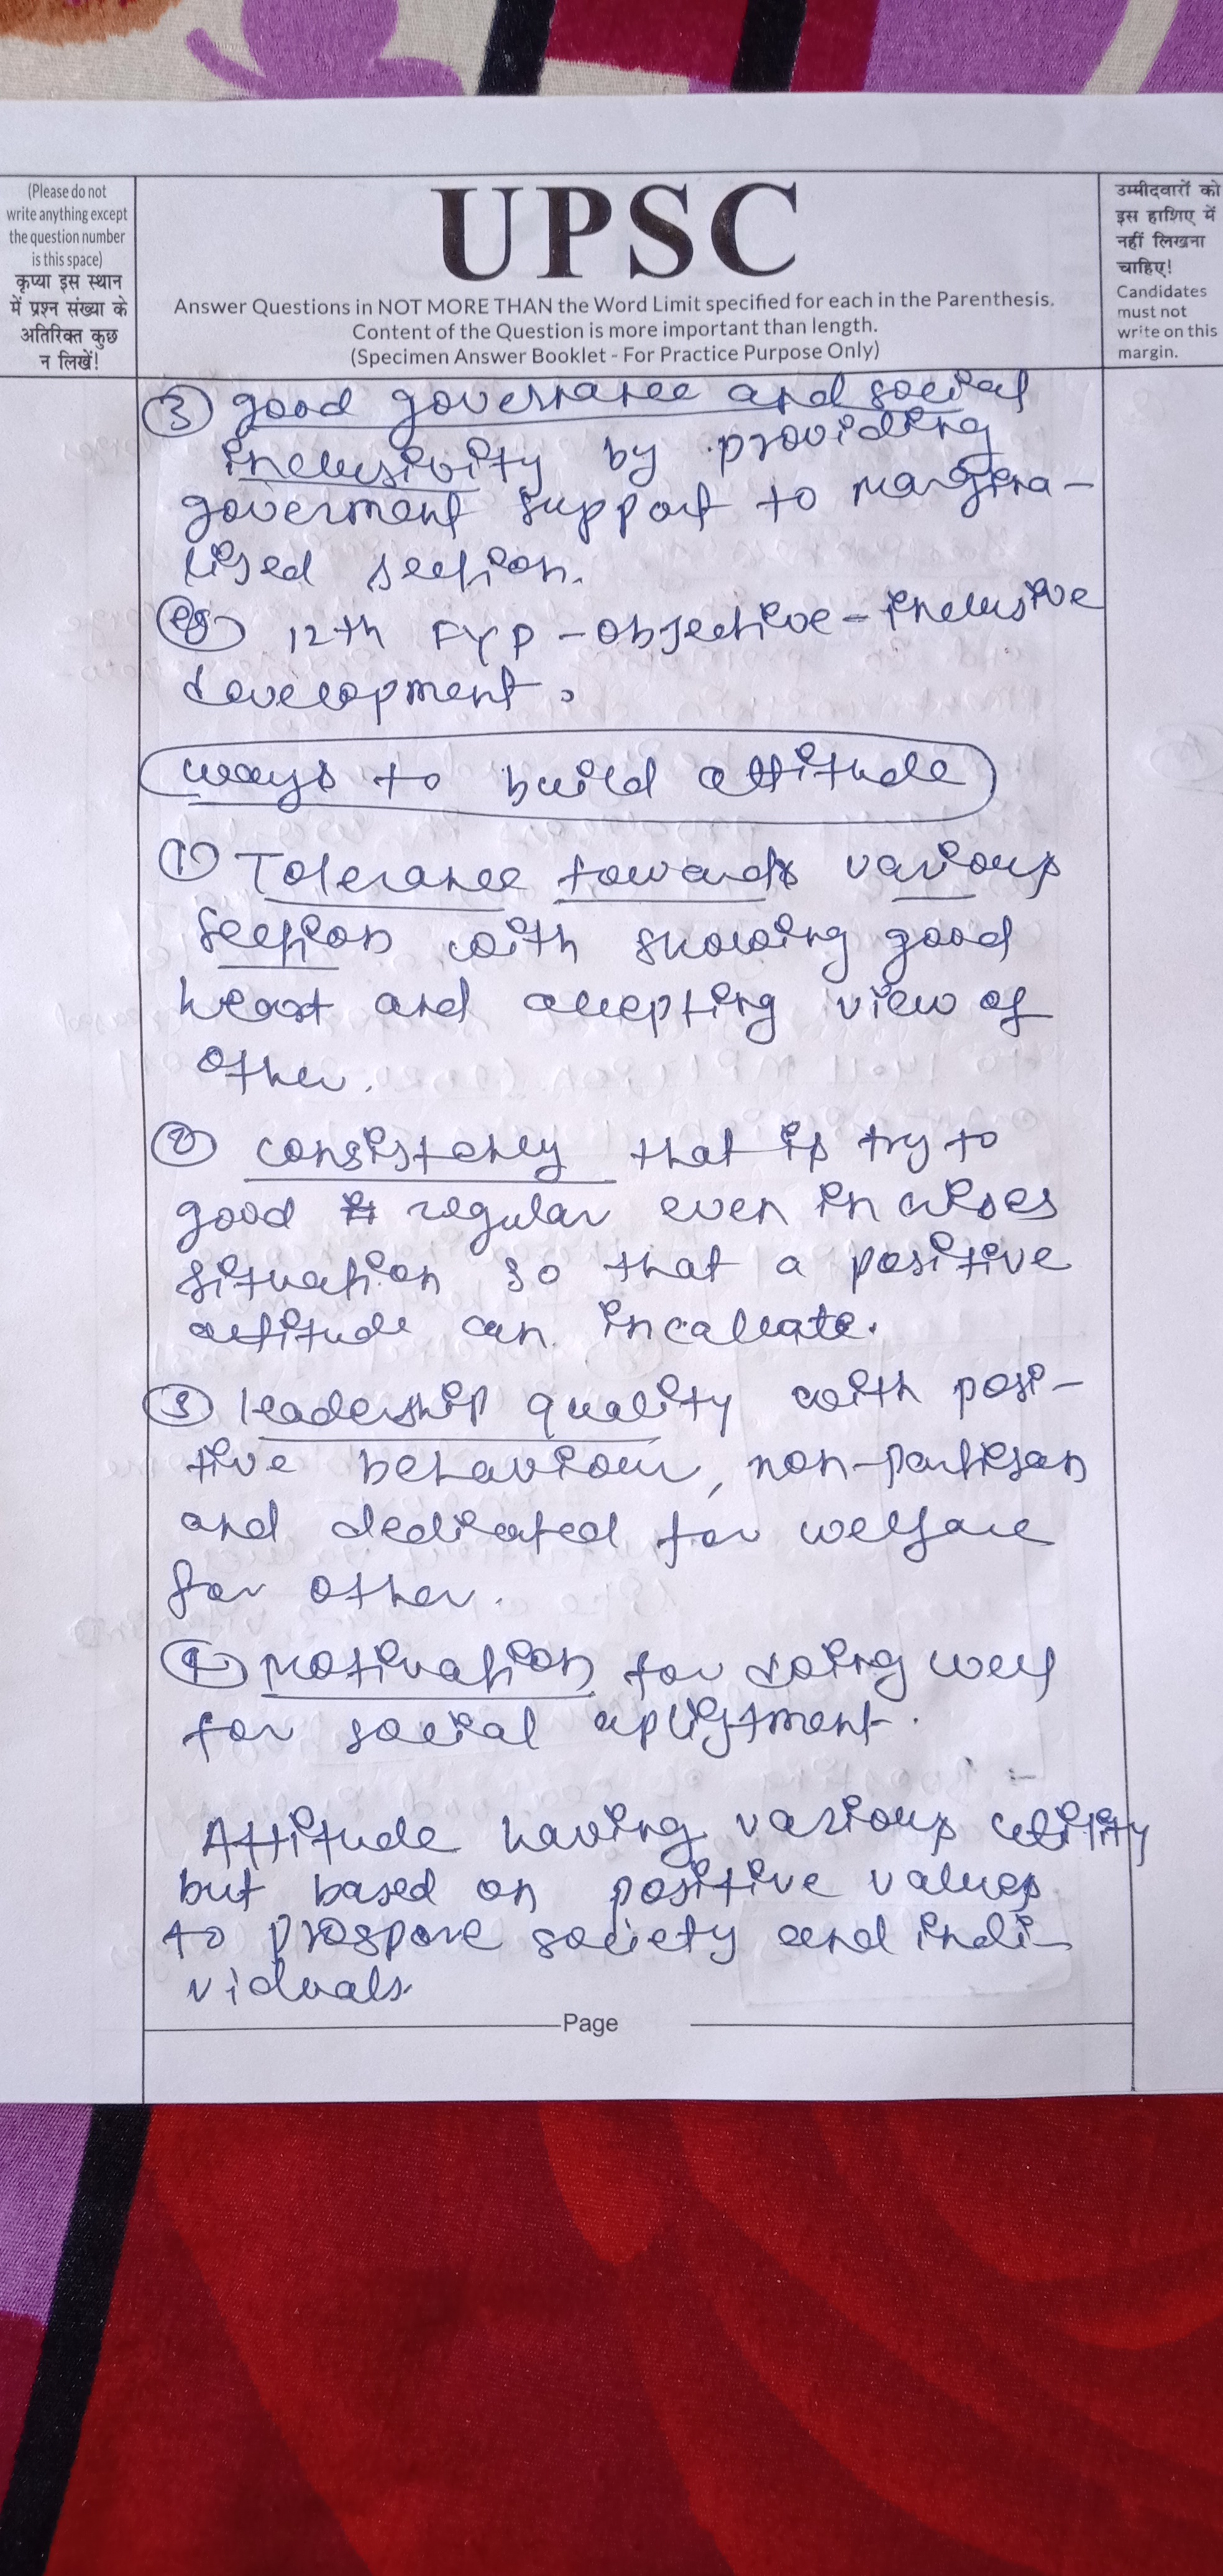 (Please do not
write anything except
the question number
is this space)
कृप्या इस स्थान
में प्रश्न संख्या के
अतिरिक्त कुछ
न लिखें!
UPSC
Answer Questions in NOT MORE THAN the Word Limit specified for each in the Parenthesis.
Content of the Question is more important than length.
(Specimen Answer Booklet - For Practice Purpose Only)
उम्मीदवारों को
इस हाशिए में
नहीं लिखना
चाहिए!
Candidates
must not
write on this
margin.
③ good governance and social
inclusivity by providing
goverment support to margina-
lised section.
eg 12th FYP - objective - inclusive
development.
ways to build attitude
① Tolerance towards various
section with showing good
heart and accepting view of
other.
② consistency that is try to
good regular even in crises
situation so that a positive
attitude can incalcate.
③ leadership quality with posi-
tive behaviour, non-partisan
and dedicated for welfare
for other.
④ motivation for doing well
for social upliftment.
Attitude having various utility
but based on positive values
to prospore society and indi-
viduals.
Page